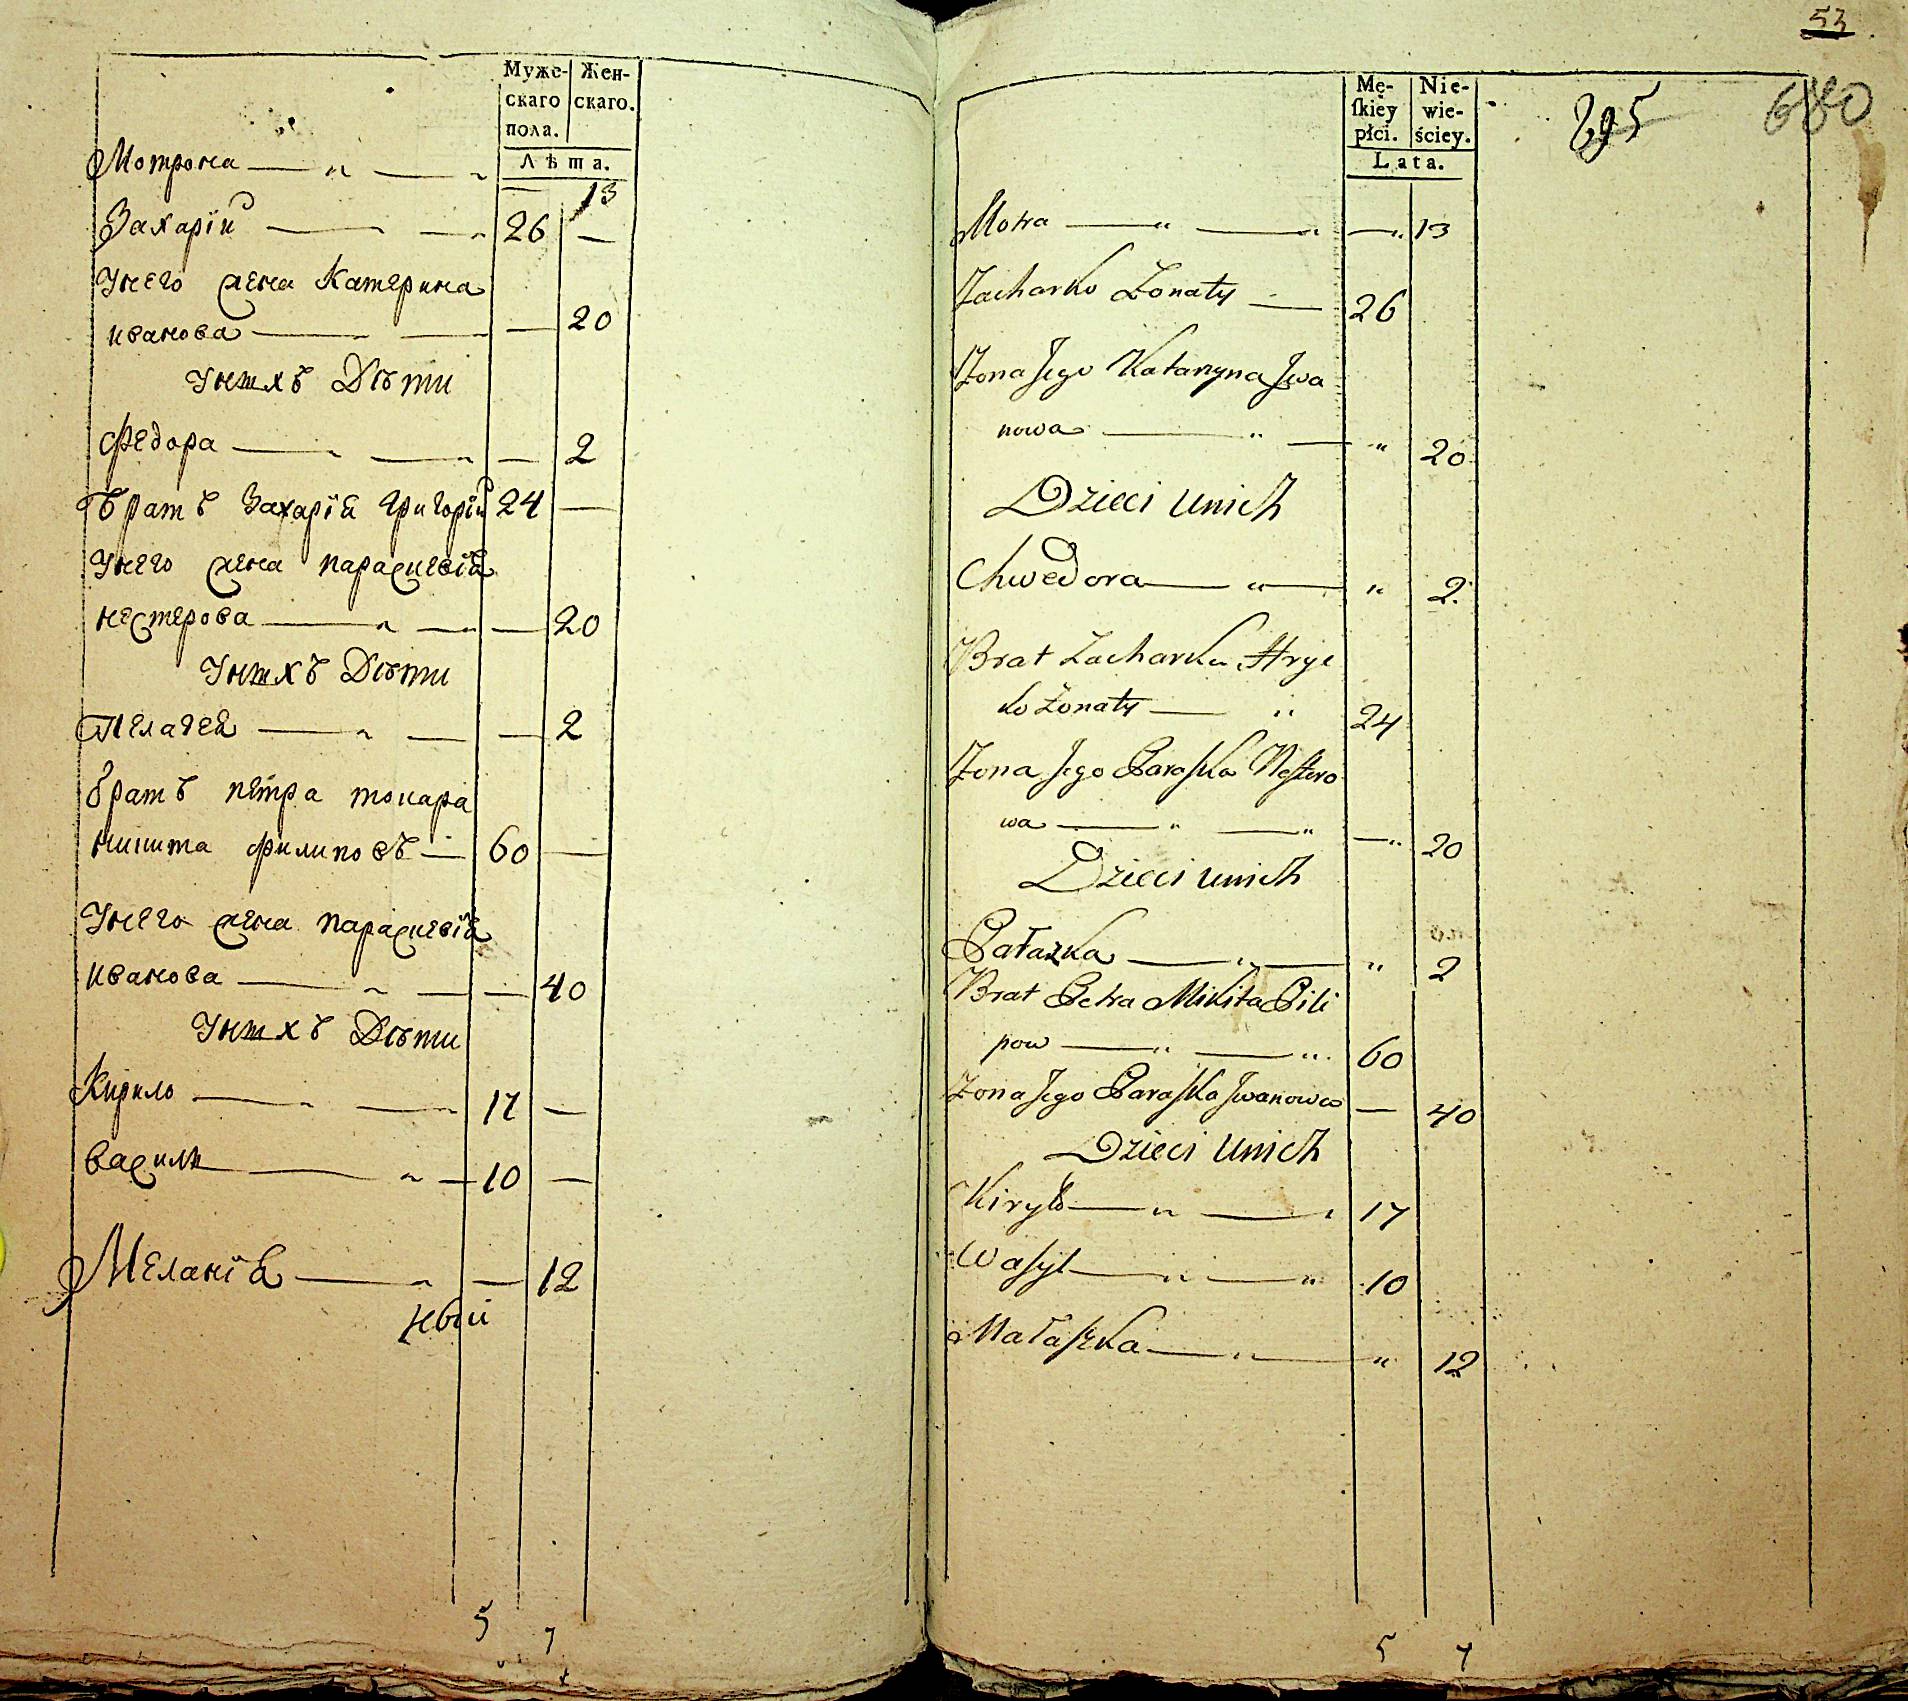 Муже-
скаго
пола.
Жен-
скаго.
Лѣта.
Мотрона — „ — „ — 13
Захарій — — „ 26 —
Унего жена Катерина
иванова — — — 20
Унихъ Дѣти
Федора — — — 2
братъ Захарія григорій 24 —
Унего жена параскевія
нестерова — „ — — 20
Унихъ Дѣти
Пелагея — „ — — 2
братъ петра токара
никита филиповъ — 60 —
Унего жена параскевія
иванова — „ — — 40
Унихъ Дѣти
Кирило — „ — 17 —
василь — „ — 10 —
Меланія — „ — 12
ный
5 7
53
Mę-
ſkiey
płci.
Nie-
wie-
ściey.
Lata.
895
680
Motra — „ — „ — „ 13
Zacharko Żonaty — 26
Żona Jego Katarzyna Jwa
nowa — „ — „ 20
Dzieci unich
Chwedora — „ — „ 2
Brat Zacharka Hryć
ko Żonaty — „ 24
Żona Jego Paraſka Neſtero
wa — „ — „ — „ 20
Dzieci unich
Pałazka — „ — „ 2
Brat Petra Mikita Pili
pow — „ — „ 60
Żona Jego Paraſka Jwanowa — 40
Dzieci unich
Kiryło — „ — „ 17
Waſyl — „ — „ 10
Małaſzka — „ — „ 12
5 7